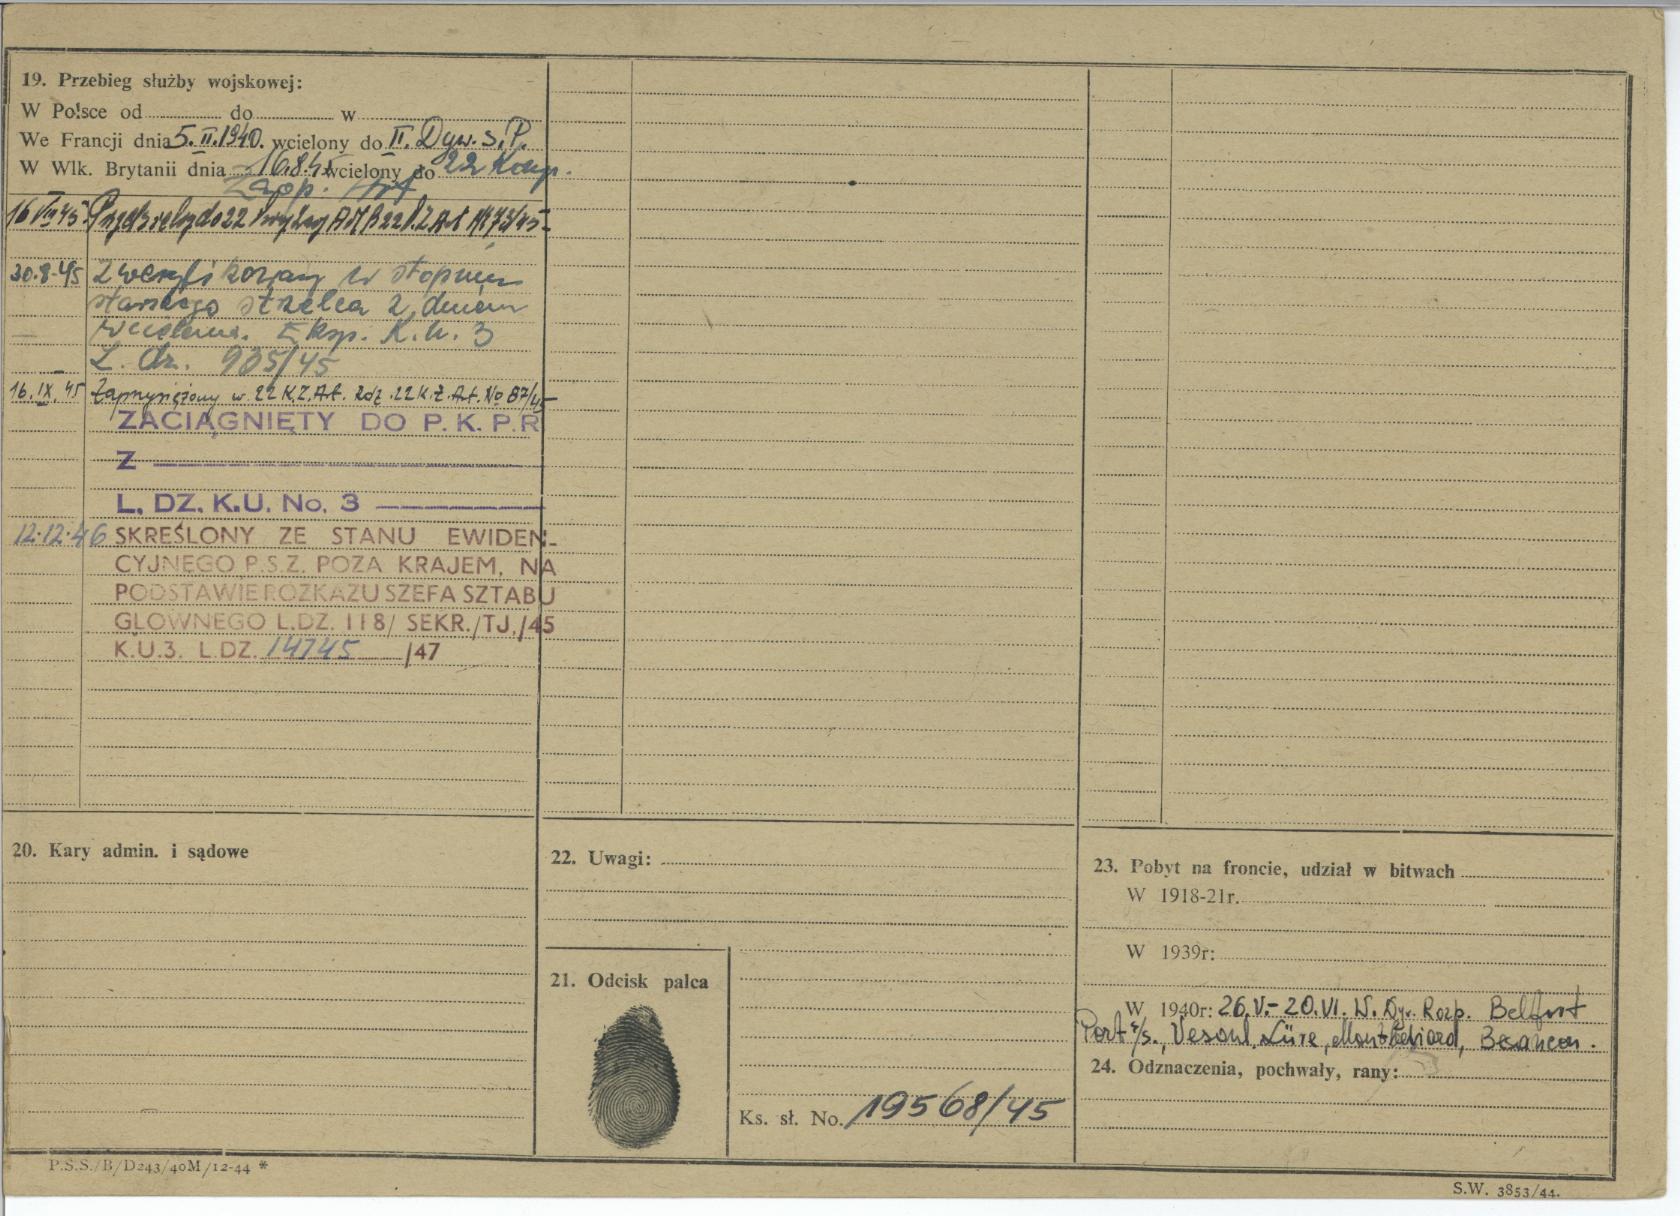 19. Przebieg służby wojskowej:
W Polsce od do w
We Francji dnia 5.II.1940. wcielony do II. Dyw. S.P.
W Wlk. Brytanii dnia 16.8.45 wcielony do 22 Komp.
Zaop. Art
16 VIII 45
30.8.45 Zweryfikowany w stopniu
starszego strzelca z dniem
wcielenia. Eksp. K.U. 3
L. dz. 905/45
16.IX.45 Zaprzysiężony w 22 K.Z.Art. Rozk. 22 K.Z.Art. No 87/45
ZACIĄGNIĘTY DO P.K.P.R
Z
L. DZ. K.U. No. 3
12.12.46 SKREŚLONY ZE STANU EWIDEN-
CYJNEGO P.S.Z. POZA KRAJEM, NA
PODSTAWIE ROZKAZU SZEFA SZTABU
GŁOWNEGO L.DZ. 118/ SEKR./TJ./45
K.U.3. L.DZ. 14745 /47
20. Kary admin. i sądowe
22. Uwagi:
21. Odcisk palca
Ks. sł. No. 19568/45
23. Pobyt na froncie, udział w bitwach
W 1918-21r.
W 1939r:
W 1940r: 26.V.- 20.VI. W. Dyw. Rozp. Belfort
Port s/s., Vesoul, Lüre, Montbeliard, Besancon.
24. Odznaczenia, pochwały, rany:
P.S.S./B/D243/40M/12-44 *
S.W. 3853/44.